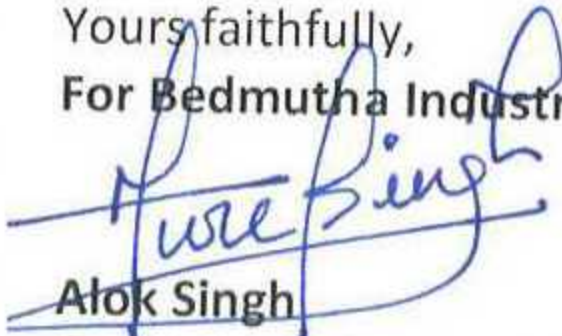 Yours faithfully,
For Bedmutha Industr
Singh
Alok Singh